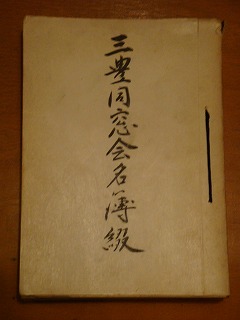 三豊同窓会名簿綴